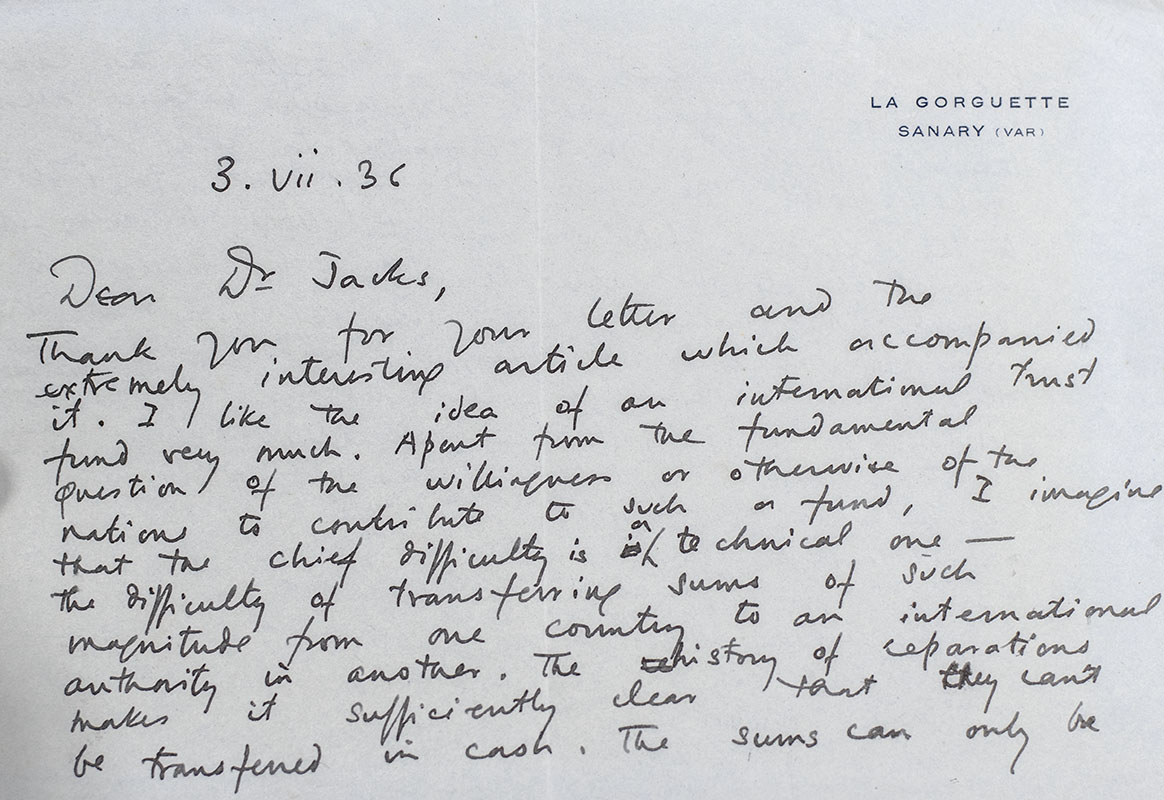 LA GORGUETTE
SANARY (VAR)
3. vii. 36
Dear Dr Jacks,
Thank you for your letter and the
extremely interesting article which accompanied
it. I like the idea of an international trust
fund very much. Apart from the fundamental
question of the willingness or otherwise of the
nations to contribute to such a fund, I imagine
that the chief difficulty is a technical one —
the difficulty of transferring sums of such
magnitude from one country to an international
authority in another. The history of reparations
makes it sufficiently clear that they can't
be transferred in cash. The sums can only be